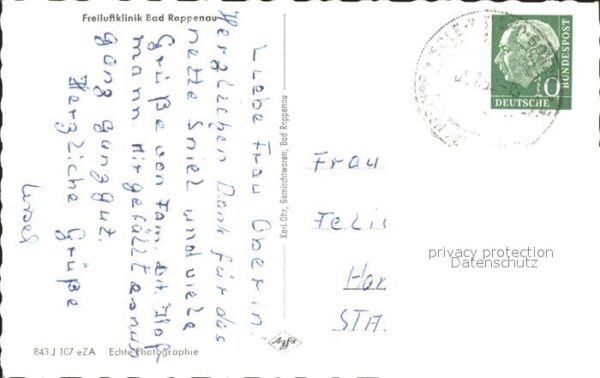 Freiluftklinik Bad Rappenau
Liebe Frau Oberin.
Herzlichen Dank für das
nette Spiel und viele
Grüße von Fam.
mann. Mir gefällt es nun
ganz ganz gut.
Herzliche Grüße
Karl Ohr, Gemischtwaren, Bad Rappenau
Agfa
843 J 107 eZA Echte Photographie
10
DEUTSCHE
BUNDESPOST
Frau
privacy protection
Datenschutz
STA